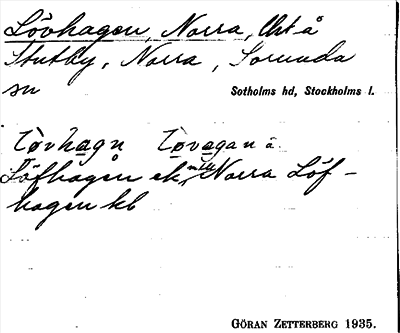 Lövhagen, Norra, Utå
Stutby, Norra, Sorunda
sn
Sotholms hd, Stockholms l.
Löfhagen ek Norra Löf-
hagen kb
GÖRAN ZETTERBERG 1935.